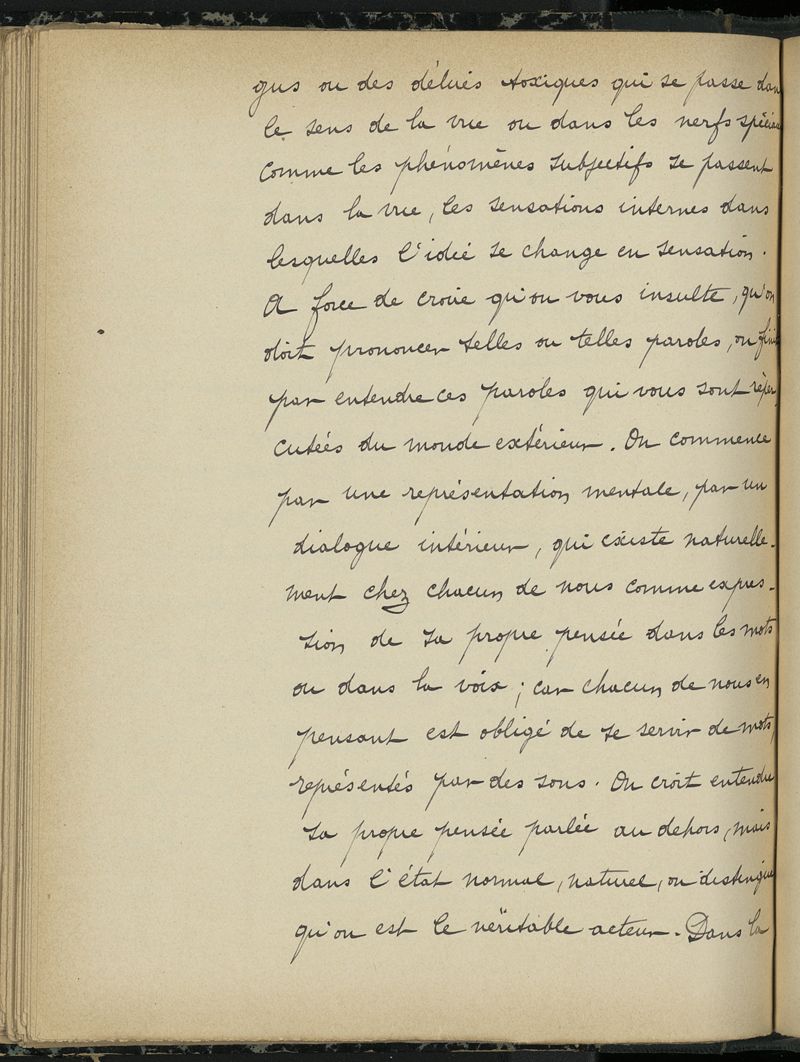 gus ou des délires toxiques qui se passe dan
le sens de la vue ou dans les nerfs spéciau
comme les phénomènes subjectifs se passent
dans la vue, les sensations internes dans
lesquelles l'idée se change en sensation.
A force de croire qu'on vous insulte, qu'on
doit prononcer telles ou telles paroles, on fini
par entendre ces paroles qui vous sont réper
cutées du monde extérieur. On commence
par une représentation mentale, par un
dialogue intérieur, qui existe naturelle-
ment chez chacun de nous comme expres-
sion de sa propre pensée dans les mots
ou dans la voix ; car chacun de nous en
pensant est obligé de se servir de mots,
représentés par des sons. On croit entendre
sa propre pensée parlée au dehors, mais
dans l'état normal, naturel, on distingue
qu'on est le véritable acteur. Dans la